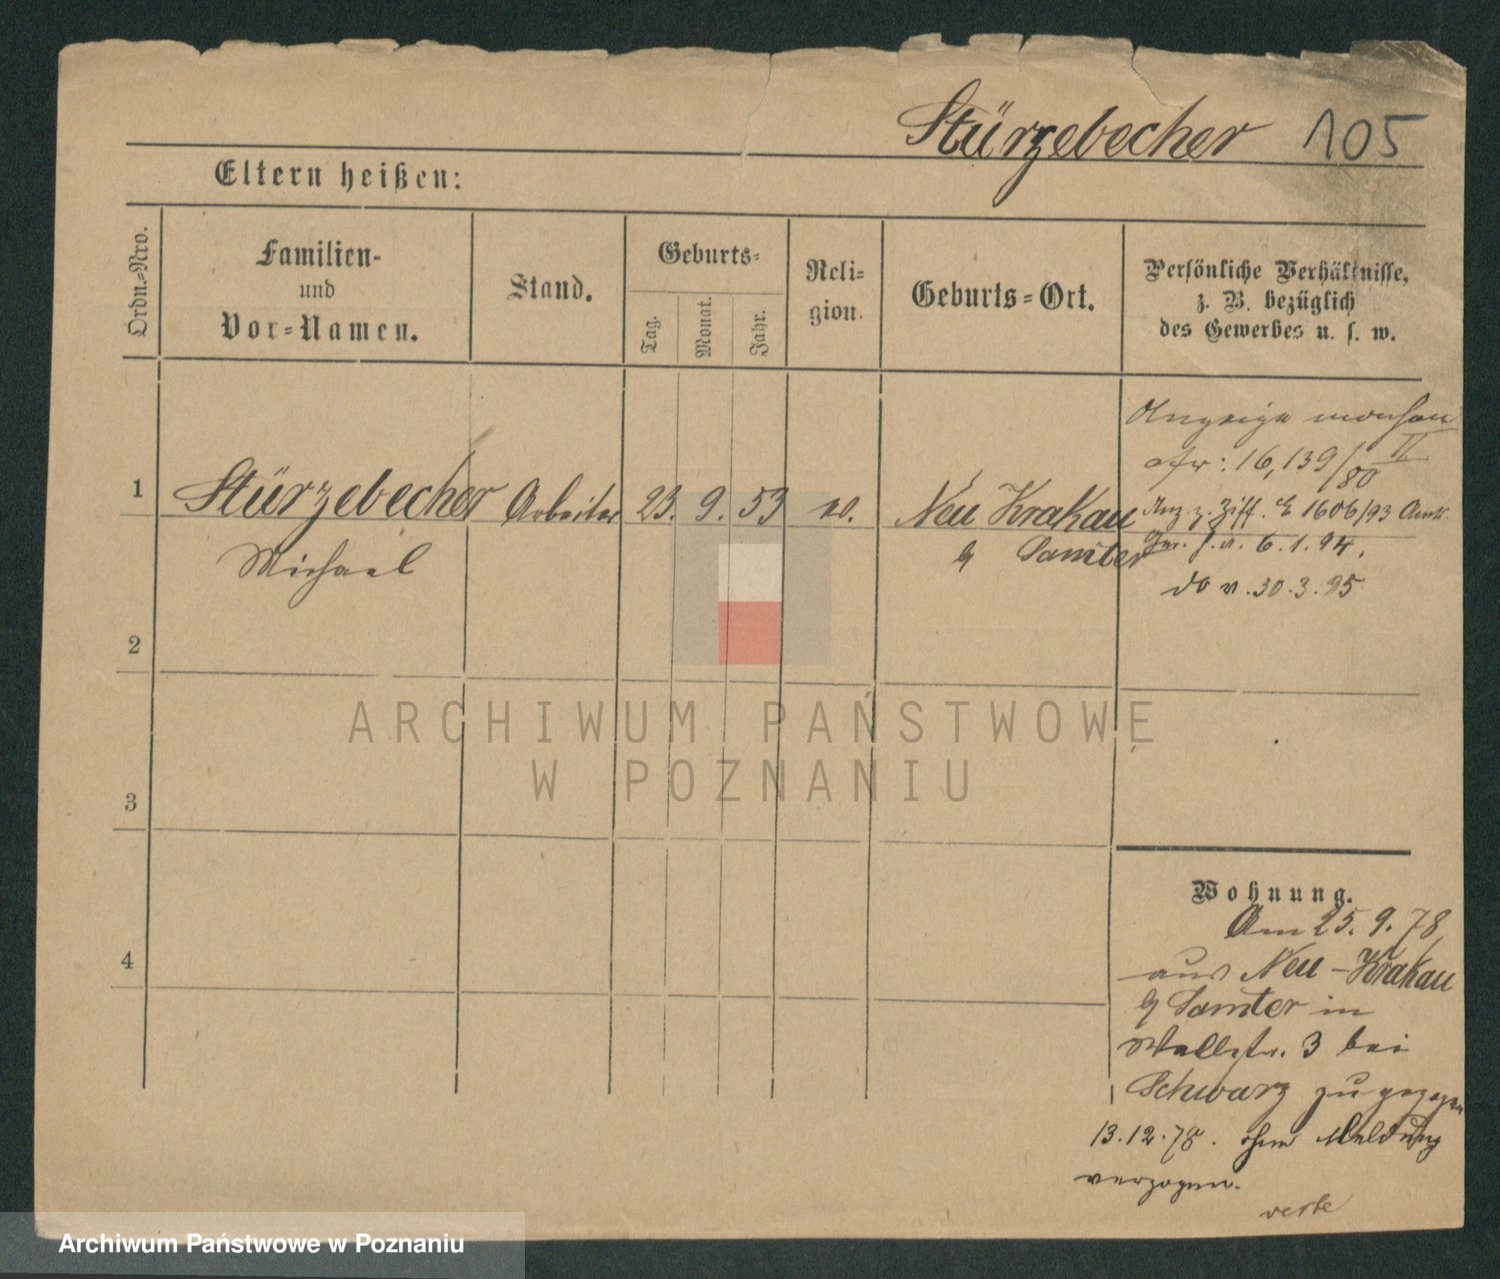 Stürzebecher 105
Eltern heißen:
Ordn.=Nro.
Familien-
und
Vor=Namen.
Stand.
Geburts=
Tag.
Monat.
Jahr.
Reli=
gion.
Geburts=Ort.
Persönliche Verhältnisse,
z. B. bezüglich
des Gewerbes u. s. w.
1
Stürzebecher
Michael
Arbeiter
23. 9. 53
ev.
Neu Krakau
Samter
Anzeige
16,139/80 II
Anz. z. Ziff. E 1606/93
6.1.94.
do v. 30.3.95
2
3
4
Wohnung.
Am 25. 9. 78
aus Neu-Krakau
Samter in
Wallstr. 3 bei
Schwarz zugezogen
13.12.78. ohne Meldung
verzogen.
verte
ARCHIWUM PAŃSTWOWE
W POZNANIU
Archiwum Państwowe w Poznaniu